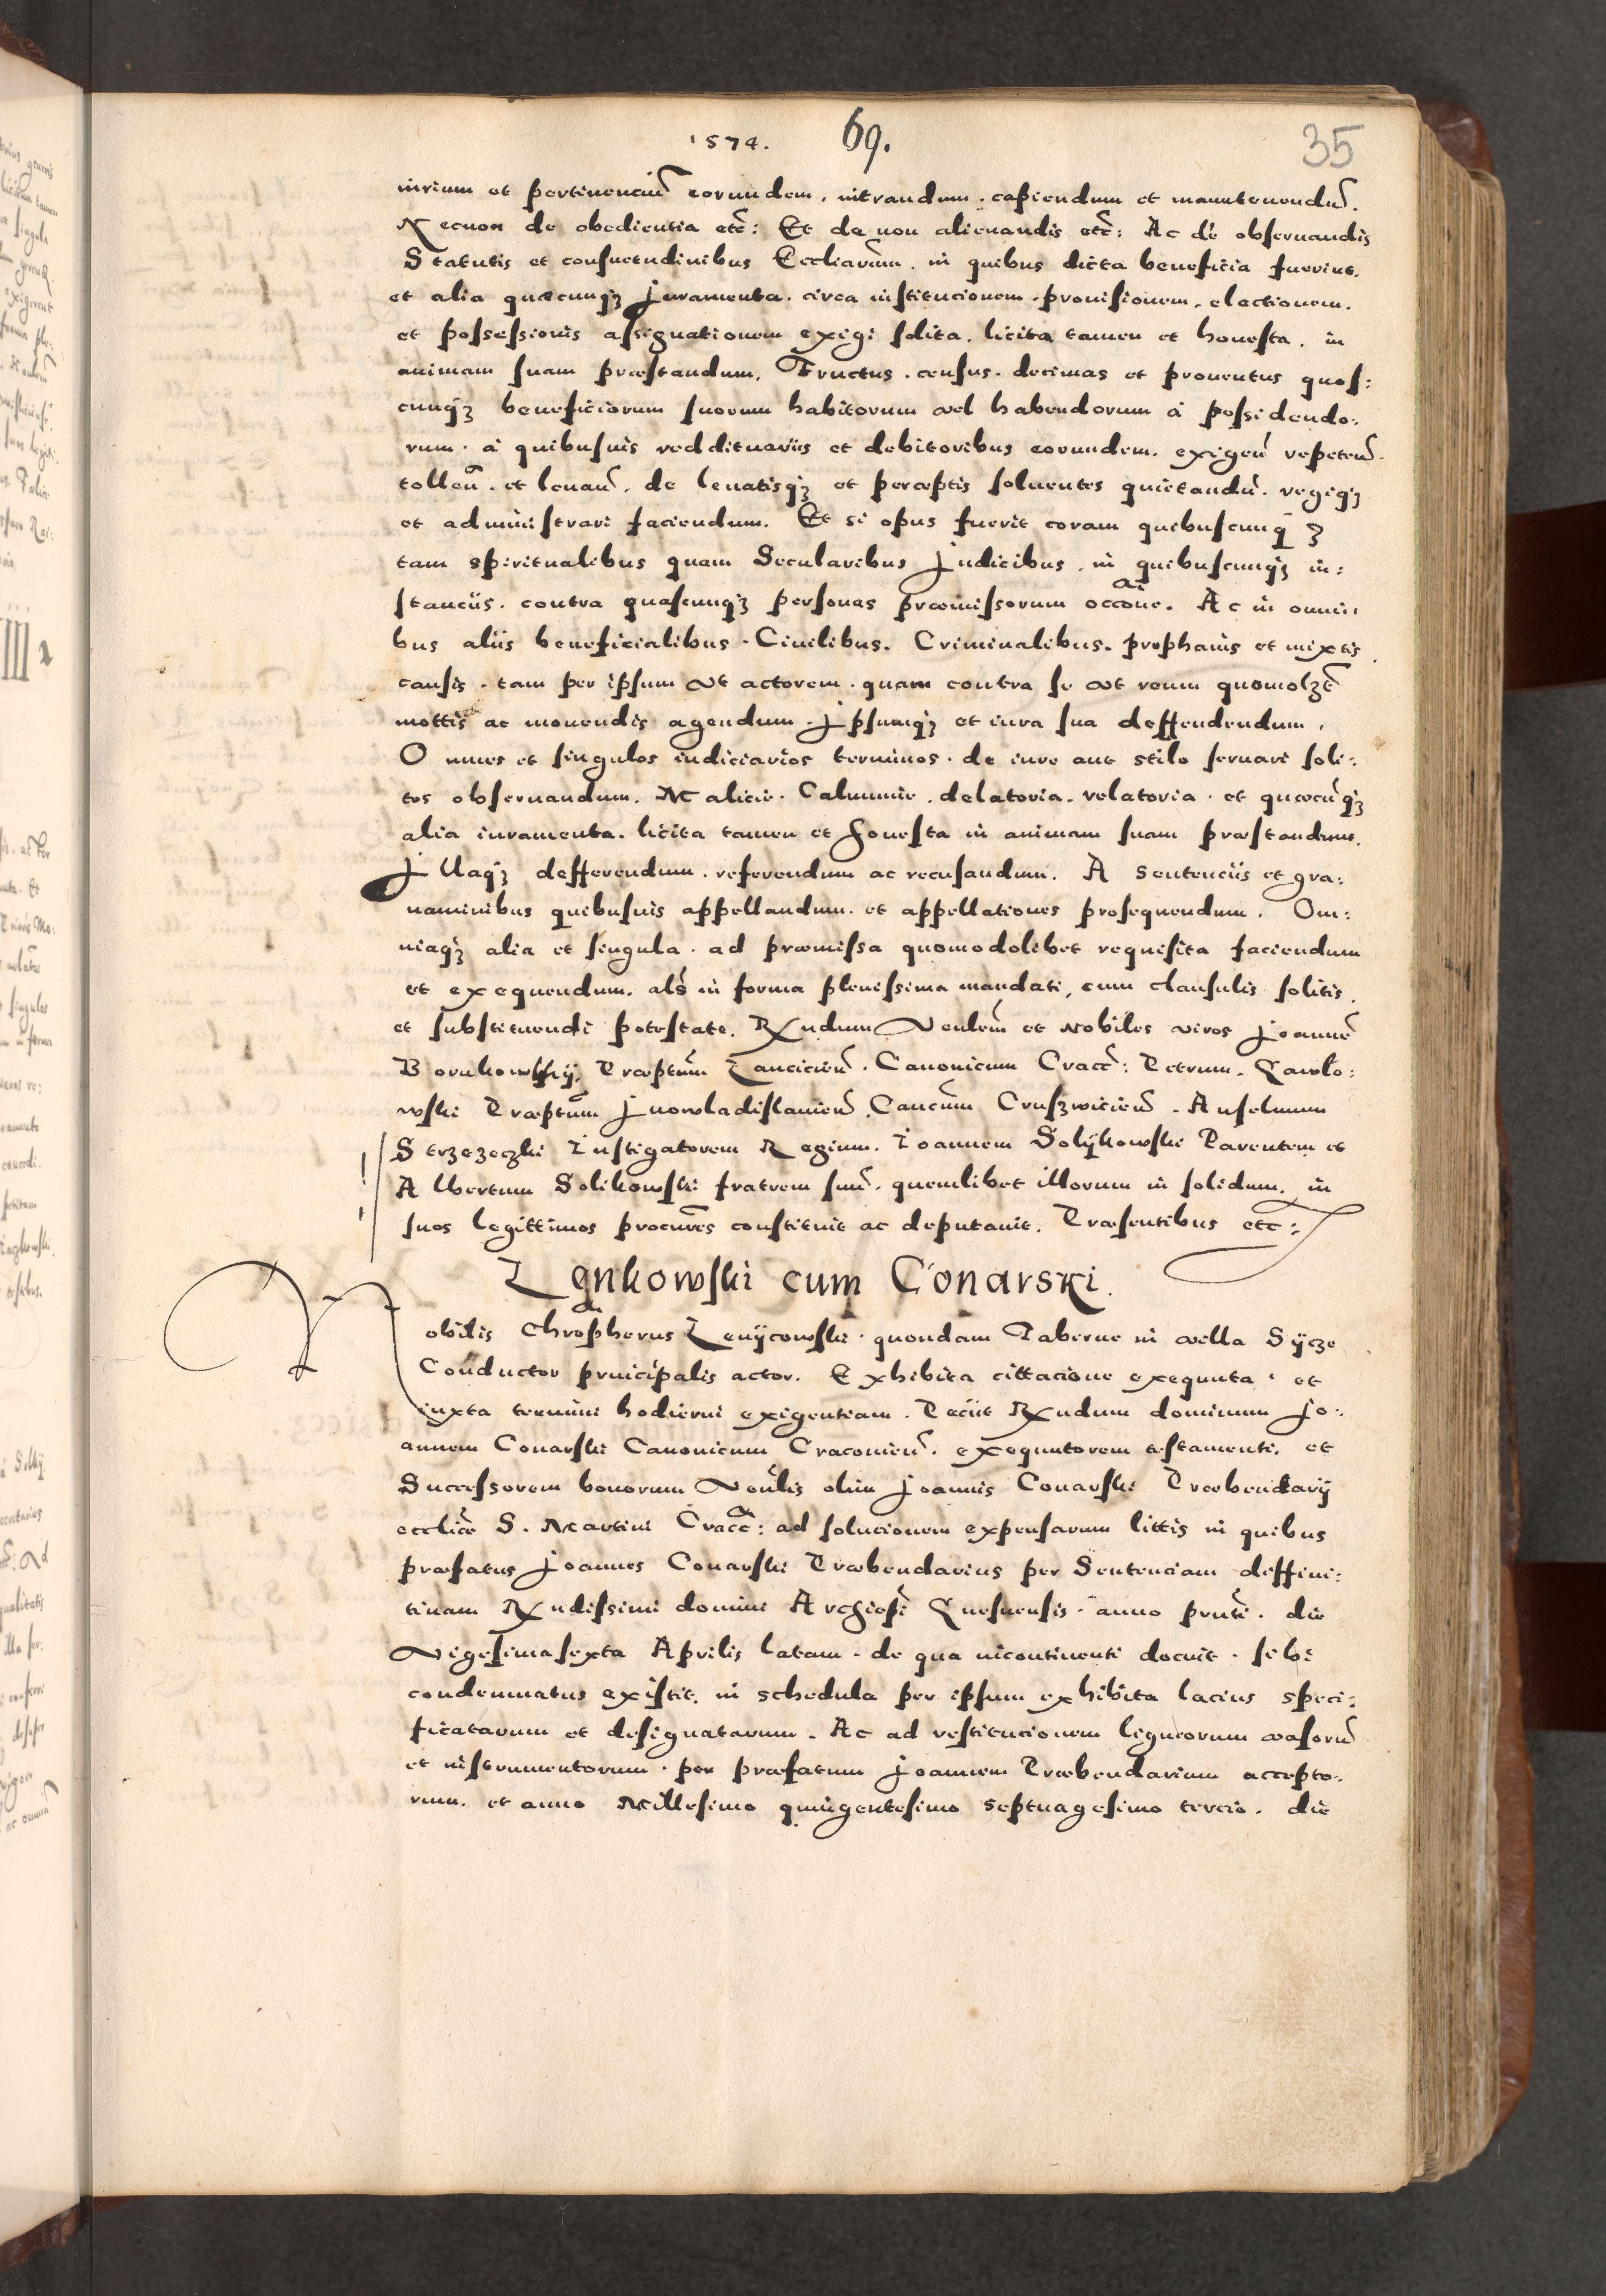 1574. 69. 35
iurium et pertinenciũ eorundem. intrandum. capiendum et manutenendũ.
Necnon de obedientia etc̃: Et de non alienandis etc̃: Ac de obseruandis
Statutis et consuetudinibus Eccliarum. in quibus dicta beneficia fuerint.
et alia quæcunqȝ Juramenta. circa institucionem. prouisionem. electionem.
et possessionis assignationem exigi solita. licita tamen et honesta. in
animam suam præstandum. Fructus. census. decimas et prouentus quos:
cunqȝ beneficiorum suorum habitorum vel habendorum a possidendo:
rum. a quibusuis reddituariis et debitoribus eorundem. exigeñ repeteñ.
tolleñ. et leuañ. de leuatisqȝ et perceptis soluentes quietandũ. regiqȝ
et administrari faciendum. Et si opus fuerit coram quibuscunqȝ
tam spiritualibus quam Secularibus Judicibus. in quibuscunqȝ in:
stanciis. contra quascunqȝ personas præmissorum occõne. Ac in omni:
bus aliis beneficialibus. Ciuilibus. Criminalibus. prophanis et mixtis.
causis. tam per ipsum vt actorem. quam contra se vt reum quomolȝt
mottis ac mouendis agendum. Jpsumqȝ et iura sua deffendendum.
Omnes et singulos iudiciarios terminos. de iure aut stilo seruari soli:
tos obseruandum. Malicie. Calumnie. delatoria. relatoria. et quæcũqȝ
alia iuramenta. licita tamen et honesta in animam suam præstandum.
Jllaqȝ defferendum. referendum ac recusandum. A sentenciis et gra:
uaminibus quibusuis appellandum. et appellationes prosequendum. Om:
niaqȝ alia et singula. ad præmissa quomodolibet requisita faciendum
et exequendum. als in forma plenissima mandati, cum clausulis solitis.
et substituendi potestate. Rxndum Venlem et Nobiles viros Joannẽ
Bornkowskij, Præptum Lancicieñ. Canonicum Cracc̃: Petrum. Gawlo:
wski Præptum Juowladislauieñ. Cancum Crusȝwicieñ. Anselmum
Strzezeczki Instigatorem Regium. Ioannem Solÿkowski Parentem et
Albertum Solikowski fratrem suũ. quemlibet illorum in solidum. in
suos legittimos procures constituit ac deputauit. Præsentibus etc:
Zenkowski cum Conarski.
Nobilis Chrõpherus Zenÿcowski. quondam Taberne in villa Sÿcze
Conductor principalis actor. Exhibita cittacione exequuta. et
iuxta termini hodierni exigentiam. Peciit Rxndum dominum Jo:
annem Conarski Canonicum Cracouieñ. exequutorem testamenti. et
Successorem bonorum Venlis olim Joannis Conarski Præbendarij
ecclie S. Martini Cracc̃: ad solucionem expensarum littis in quibus
præfatus Joannes Conarski Præbendarius per Sentenciam diffini:
tiuam Rxndissimi domini Archiepi Gnesnensis. anno prnti. die
Vigesimasexta Aprilis latam. de qua incontinenti docuit. sibi
condemnatus existit. in schedula per ipsum exhibita lacius speci:
ficatarum et designatarum. Ac ad restitucionem ligneorum vasorũ
et instrumentorum. per præfatum Joannem Præbendarium accepto:
rum. et anno Millesimo quingentesimo septuagesimo tercio. die